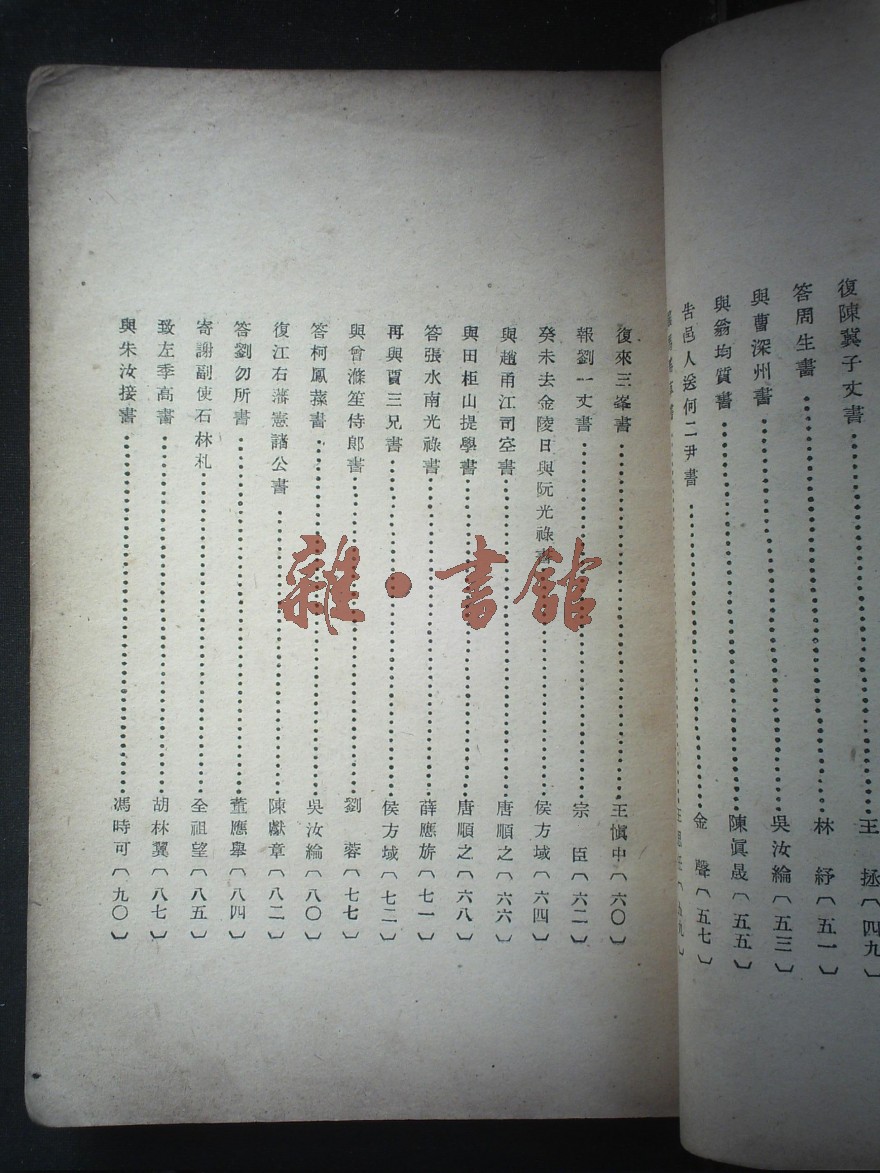 復陳冀子丈書………王拯〔四九〕
答周生書………林紓〔五一〕
與曹深州書………吳汝綸〔五三〕
與翁均質書………陳眞晟〔五五〕
告邑人送何二尹書………金聲〔五七〕
復來三峯書………王愼中〔六〇〕
報劉一丈書………宗臣〔六二〕
癸未去金陵日與阮光祿書………侯方域〔六四〕
與趙甬江司空書………唐順之〔六六〕
與田柜山提學書………唐順之〔六八〕
答張水南光祿書………薛應旂〔七一〕
再與賈三兄書………侯方域〔七二〕
與曾滌笙侍郎書………劉蓉〔七七〕
答柯鳳蓀書………吳汝綸〔八〇〕
復江右藩憲諸公書………陳獻章〔八二〕
答劉勿所書………董應舉〔八四〕
寄謝副使石林札………全祖望〔八五〕
致左季高書………胡林翼〔八七〕
與朱汝接書………馮時可〔九〇〕
雜·書館